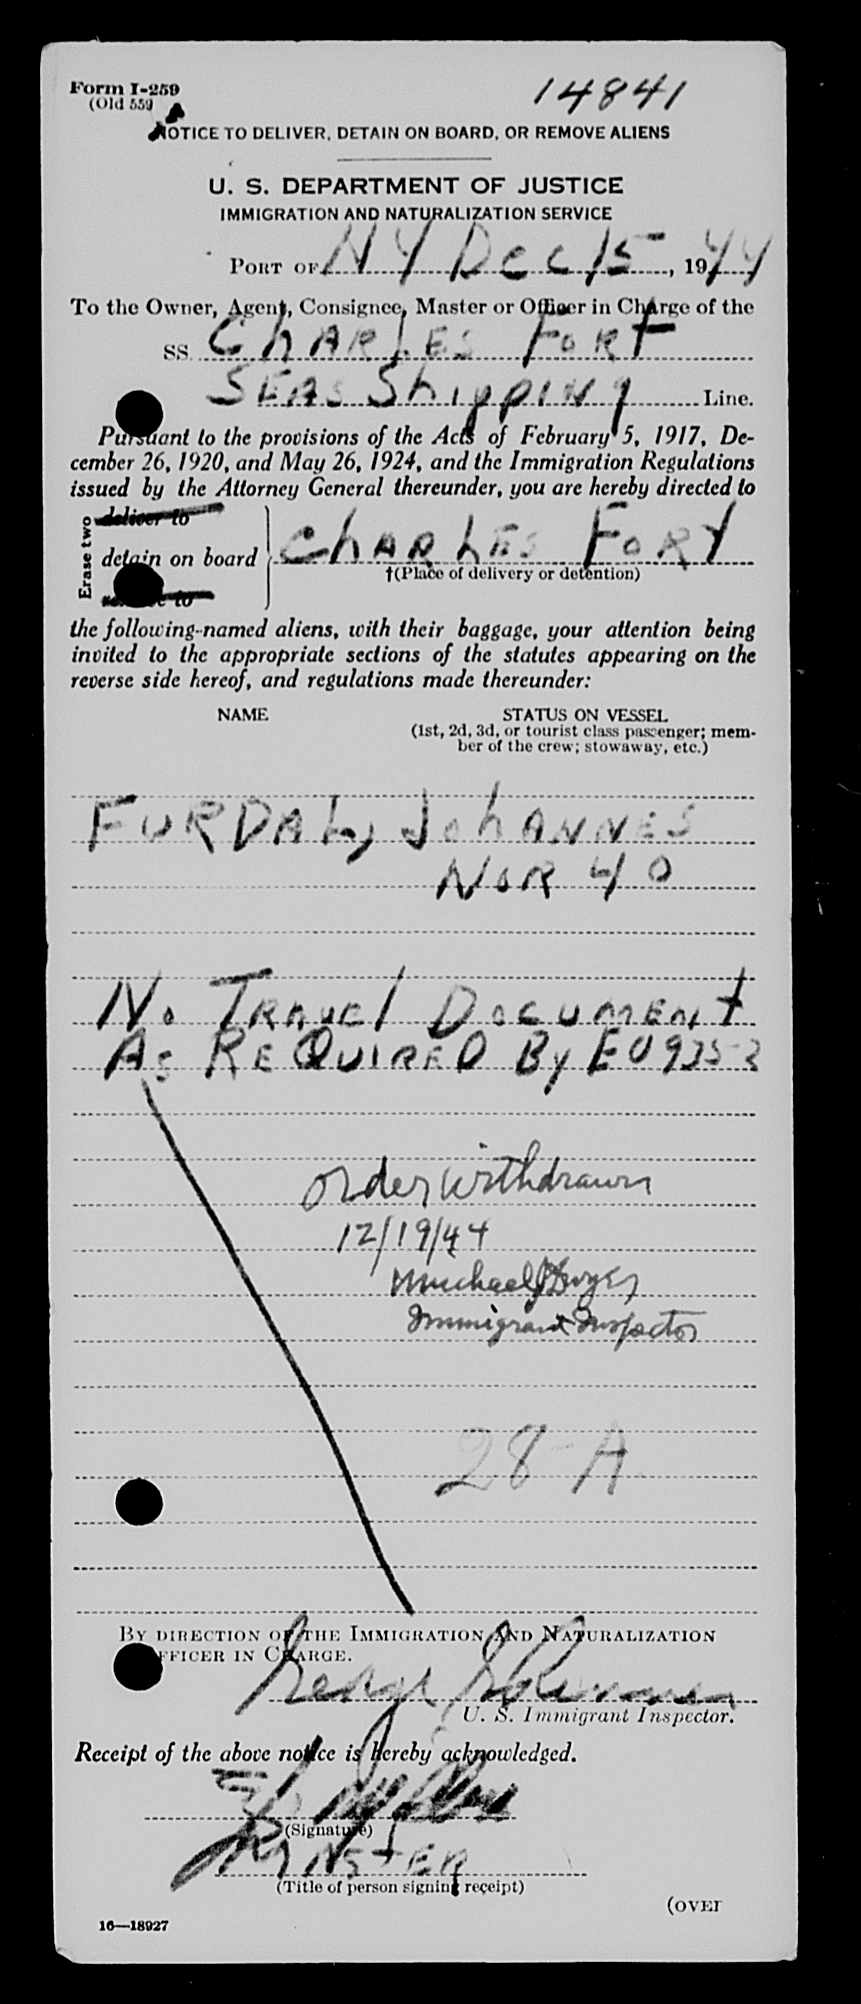 Form I-259
(Old 559
14841
NOTICE TO DELIVER, DETAIN ON BOARD, OR REMOVE ALIENS
U. S. DEPARTMENT OF JUSTICE
IMMIGRATION AND NATURALIZATION SERVICE
PORT OF NY Dec 15, 1944
To the Owner, Agent, Consignee, Master or Officer in Charge of the
SS. CHARLES FORT
SEAS Shipping Line.
Pursuant to the provisions of the Acts of February 5, 1917, De-
cember 26, 1920, and May 26, 1924, and the Immigration Regulations
issued by the Attorney General thereunder, you are hereby directed to
Erase two
deliver to
detain on board
CHARLES FORT
†(Place of delivery or detention)
to
the following-named aliens, with their baggage, your attention being
invited to the appropriate sections of the statutes appearing on the
reverse side hereof, and regulations made thereunder:
NAME
STATUS ON VESSEL
(1st, 2d, 3d, or tourist class passenger; mem-
ber of the crew; stowaway, etc.)
FURDAL, JohANNES
NOR 40
No TRAVEL DOCUMENT
As REQUIRED By
Order withdrawn
12/19/44
Michael Dwyer
Immigrant Inspector
28-A
BY DIRECTION OF THE IMMIGRATION AND NATURALIZATION
OFFICER IN CHARGE.
George
U. S. Immigrant Inspector.
Receipt of the above notice is hereby acknowledged.
(Signature)
(Title of person signing receipt)
(OVER
16—18927